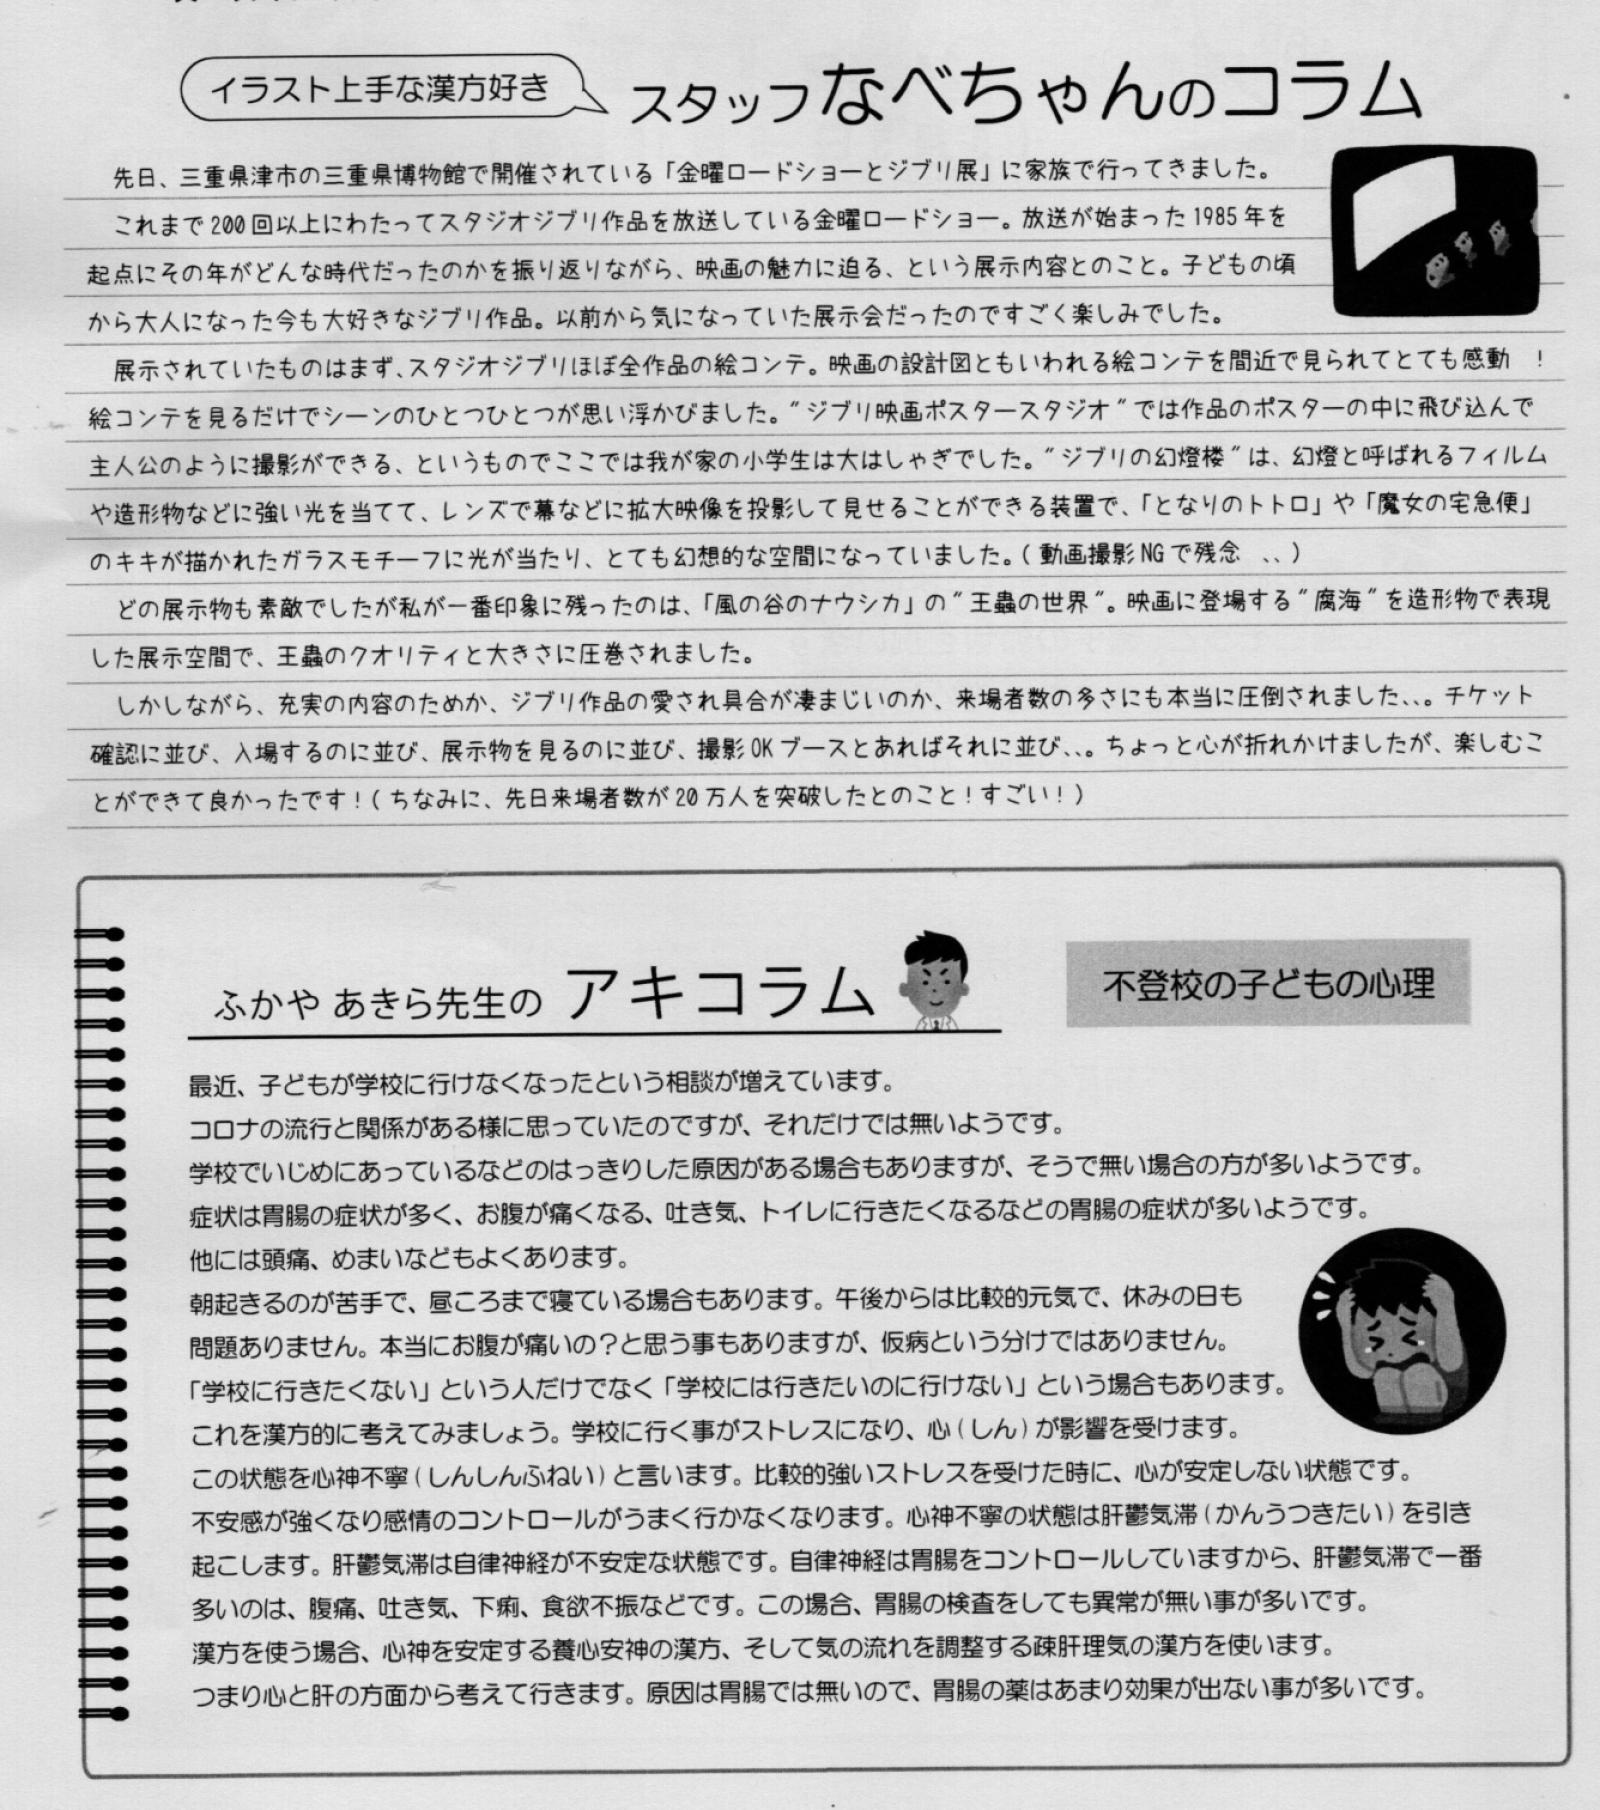 イラスト上手な漢方好き
スタッフなべちゃんのコラム
先日、三重県津市の三重県博物館で開催されている「金曜ロードショーとジブリ展」に家族で行ってきました。
これまで200回以上にわたってスタジオジブリ作品を放送している金曜ロードショー。放送が始まった1985年を
起点にその年がどんな時代だったのかを振り返りながら、映画の魅力に迫る、という展示内容とのこと。子どもの頃
から大人になった今も大好きなジブリ作品。以前から気になっていた展示会だったのですごく楽しみでした。
展示されていたものはまず、スタジオジブリほぼ全作品の絵コンテ。映画の設計図ともいわれる絵コンテを間近で見られてとても感動 !
絵コンテを見るだけでシーンのひとつひとつが思い浮かびました。"ジブリ映画ポスタースタジオ"では作品のポスターの中に飛び込んで
主人公のように撮影ができる、というものでここでは我が家の小学生は大はしゃぎでした。"ジブリの幻燈楼"は、幻燈と呼ばれるフィルム
や造形物などに強い光を当てて、レンズで幕などに拡大映像を投影して見せることができる装置で、「となりのトトロ」や「魔女の宅急便」
のキキが描かれたガラスモチーフに光が当たり、とても幻想的な空間になっていました。(動画撮影NGで残念 、、)
どの展示物も素敵でしたが私が一番印象に残ったのは、「風の谷のナウシカ」の"王蟲の世界"。映画に登場する"腐海"を造形物で表現
した展示空間で、王蟲のクオリティと大きさに圧巻されました。
しかしながら、充実の内容のためか、ジブリ作品の愛され具合が凄まじいのか、来場者数の多さにも本当に圧倒されました、、。チケット
確認に並び、入場するのに並び、展示物を見るのに並び、撮影OKブースとあればそれに並び、、。ちょっと心が折れかけましたが、楽しむこ
とができて良かったです!(ちなみに、先日来場者数が20万人を突破したとのこと!すごい!)
ふかや あきら先生の アキコラム
不登校の子どもの心理
最近、子どもが学校に行けなくなったという相談が増えています。
コロナの流行と関係がある様に思っていたのですが、それだけでは無いようです。
学校でいじめにあっているなどのはっきりした原因がある場合もありますが、そうで無い場合の方が多いようです。
症状は胃腸の症状が多く、お腹が痛くなる、吐き気、トイレに行きたくなるなどの胃腸の症状が多いようです。
他には頭痛、めまいなどもよくあります。
朝起きるのが苦手で、昼ころまで寝ている場合もあります。午後からは比較的元気で、休みの日も
問題ありません。本当にお腹が痛いの?と思う事もありますが、仮病という分けではありません。
「学校に行きたくない」という人だけでなく「学校には行きたいのに行けない」という場合もあります。
これを漢方的に考えてみましょう。学校に行く事がストレスになり、心(しん)が影響を受けます。
この状態を心神不寧(しんしんふねい)と言います。比較的強いストレスを受けた時に、心が安定しない状態です。
不安感が強くなり感情のコントロールがうまく行かなくなります。心神不寧の状態は肝鬱気滞(かんうつきたい)を引き
起こします。肝鬱気滞は自律神経が不安定な状態です。自律神経は胃腸をコントロールしていますから、肝鬱気滞で一番
多いのは、腹痛、吐き気、下痢、食欲不振などです。この場合、胃腸の検査をしても異常が無い事が多いです。
漢方を使う場合、心神を安定する養心安神の漢方、そして気の流れを調整する疎肝理気の漢方を使います。
つまり心と肝の方面から考えて行きます。原因は胃腸では無いので、胃腸の薬はあまり効果が出ない事が多いです。